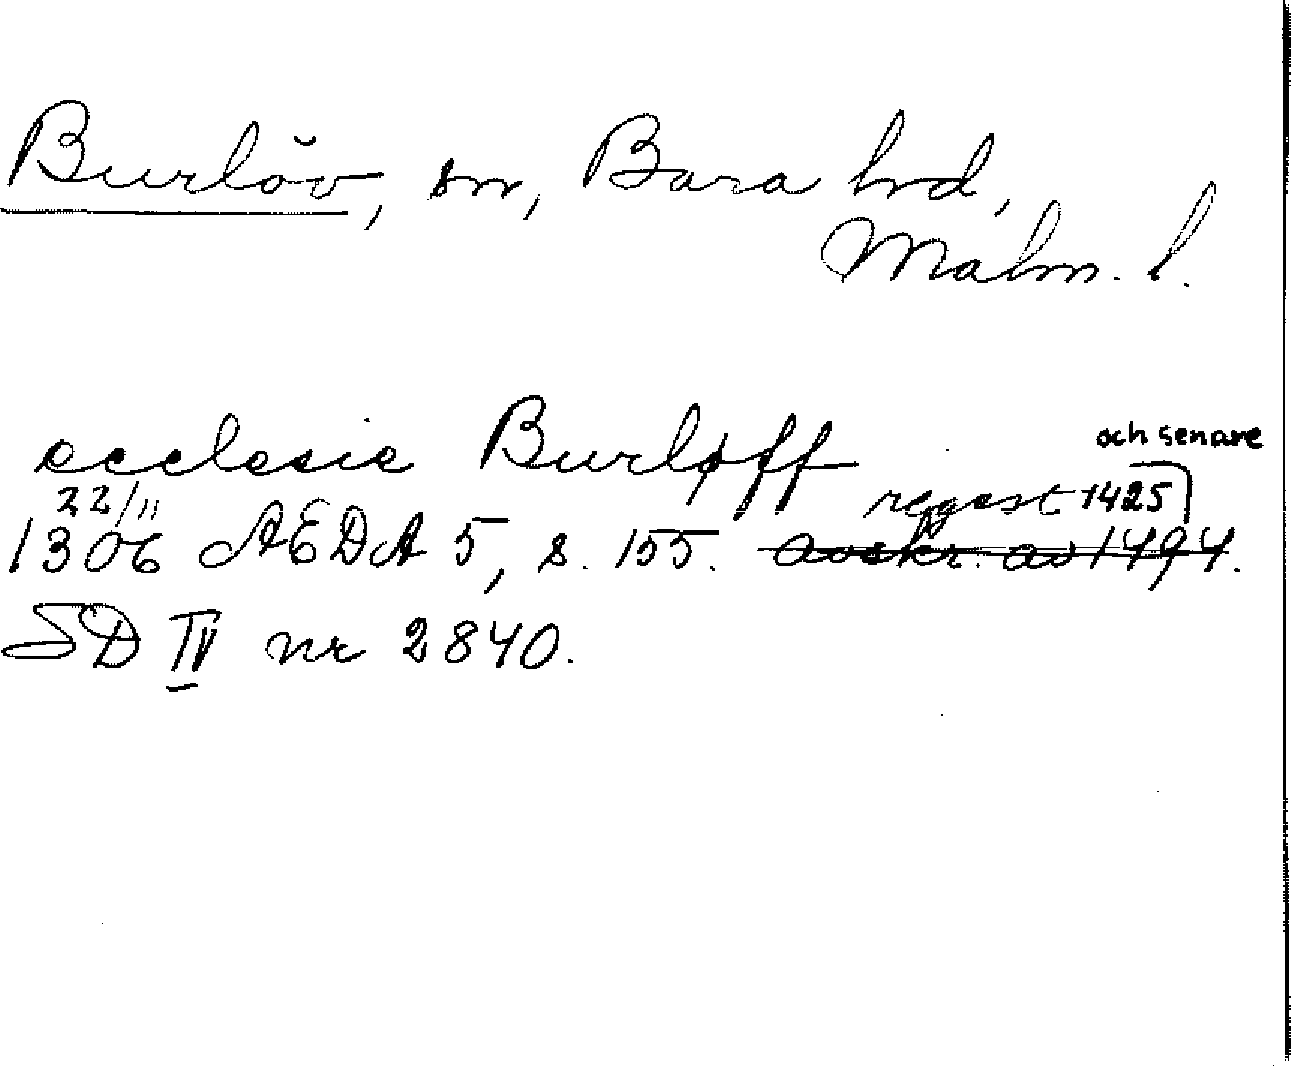 Burlöv, sn, Bara hrd,
Malm. l.
ecclesie Burløff
och senare
22/11 regest 1425
1306 AEDA 5, s. 155. avskr. av 1494.
SD IV nr 2840.